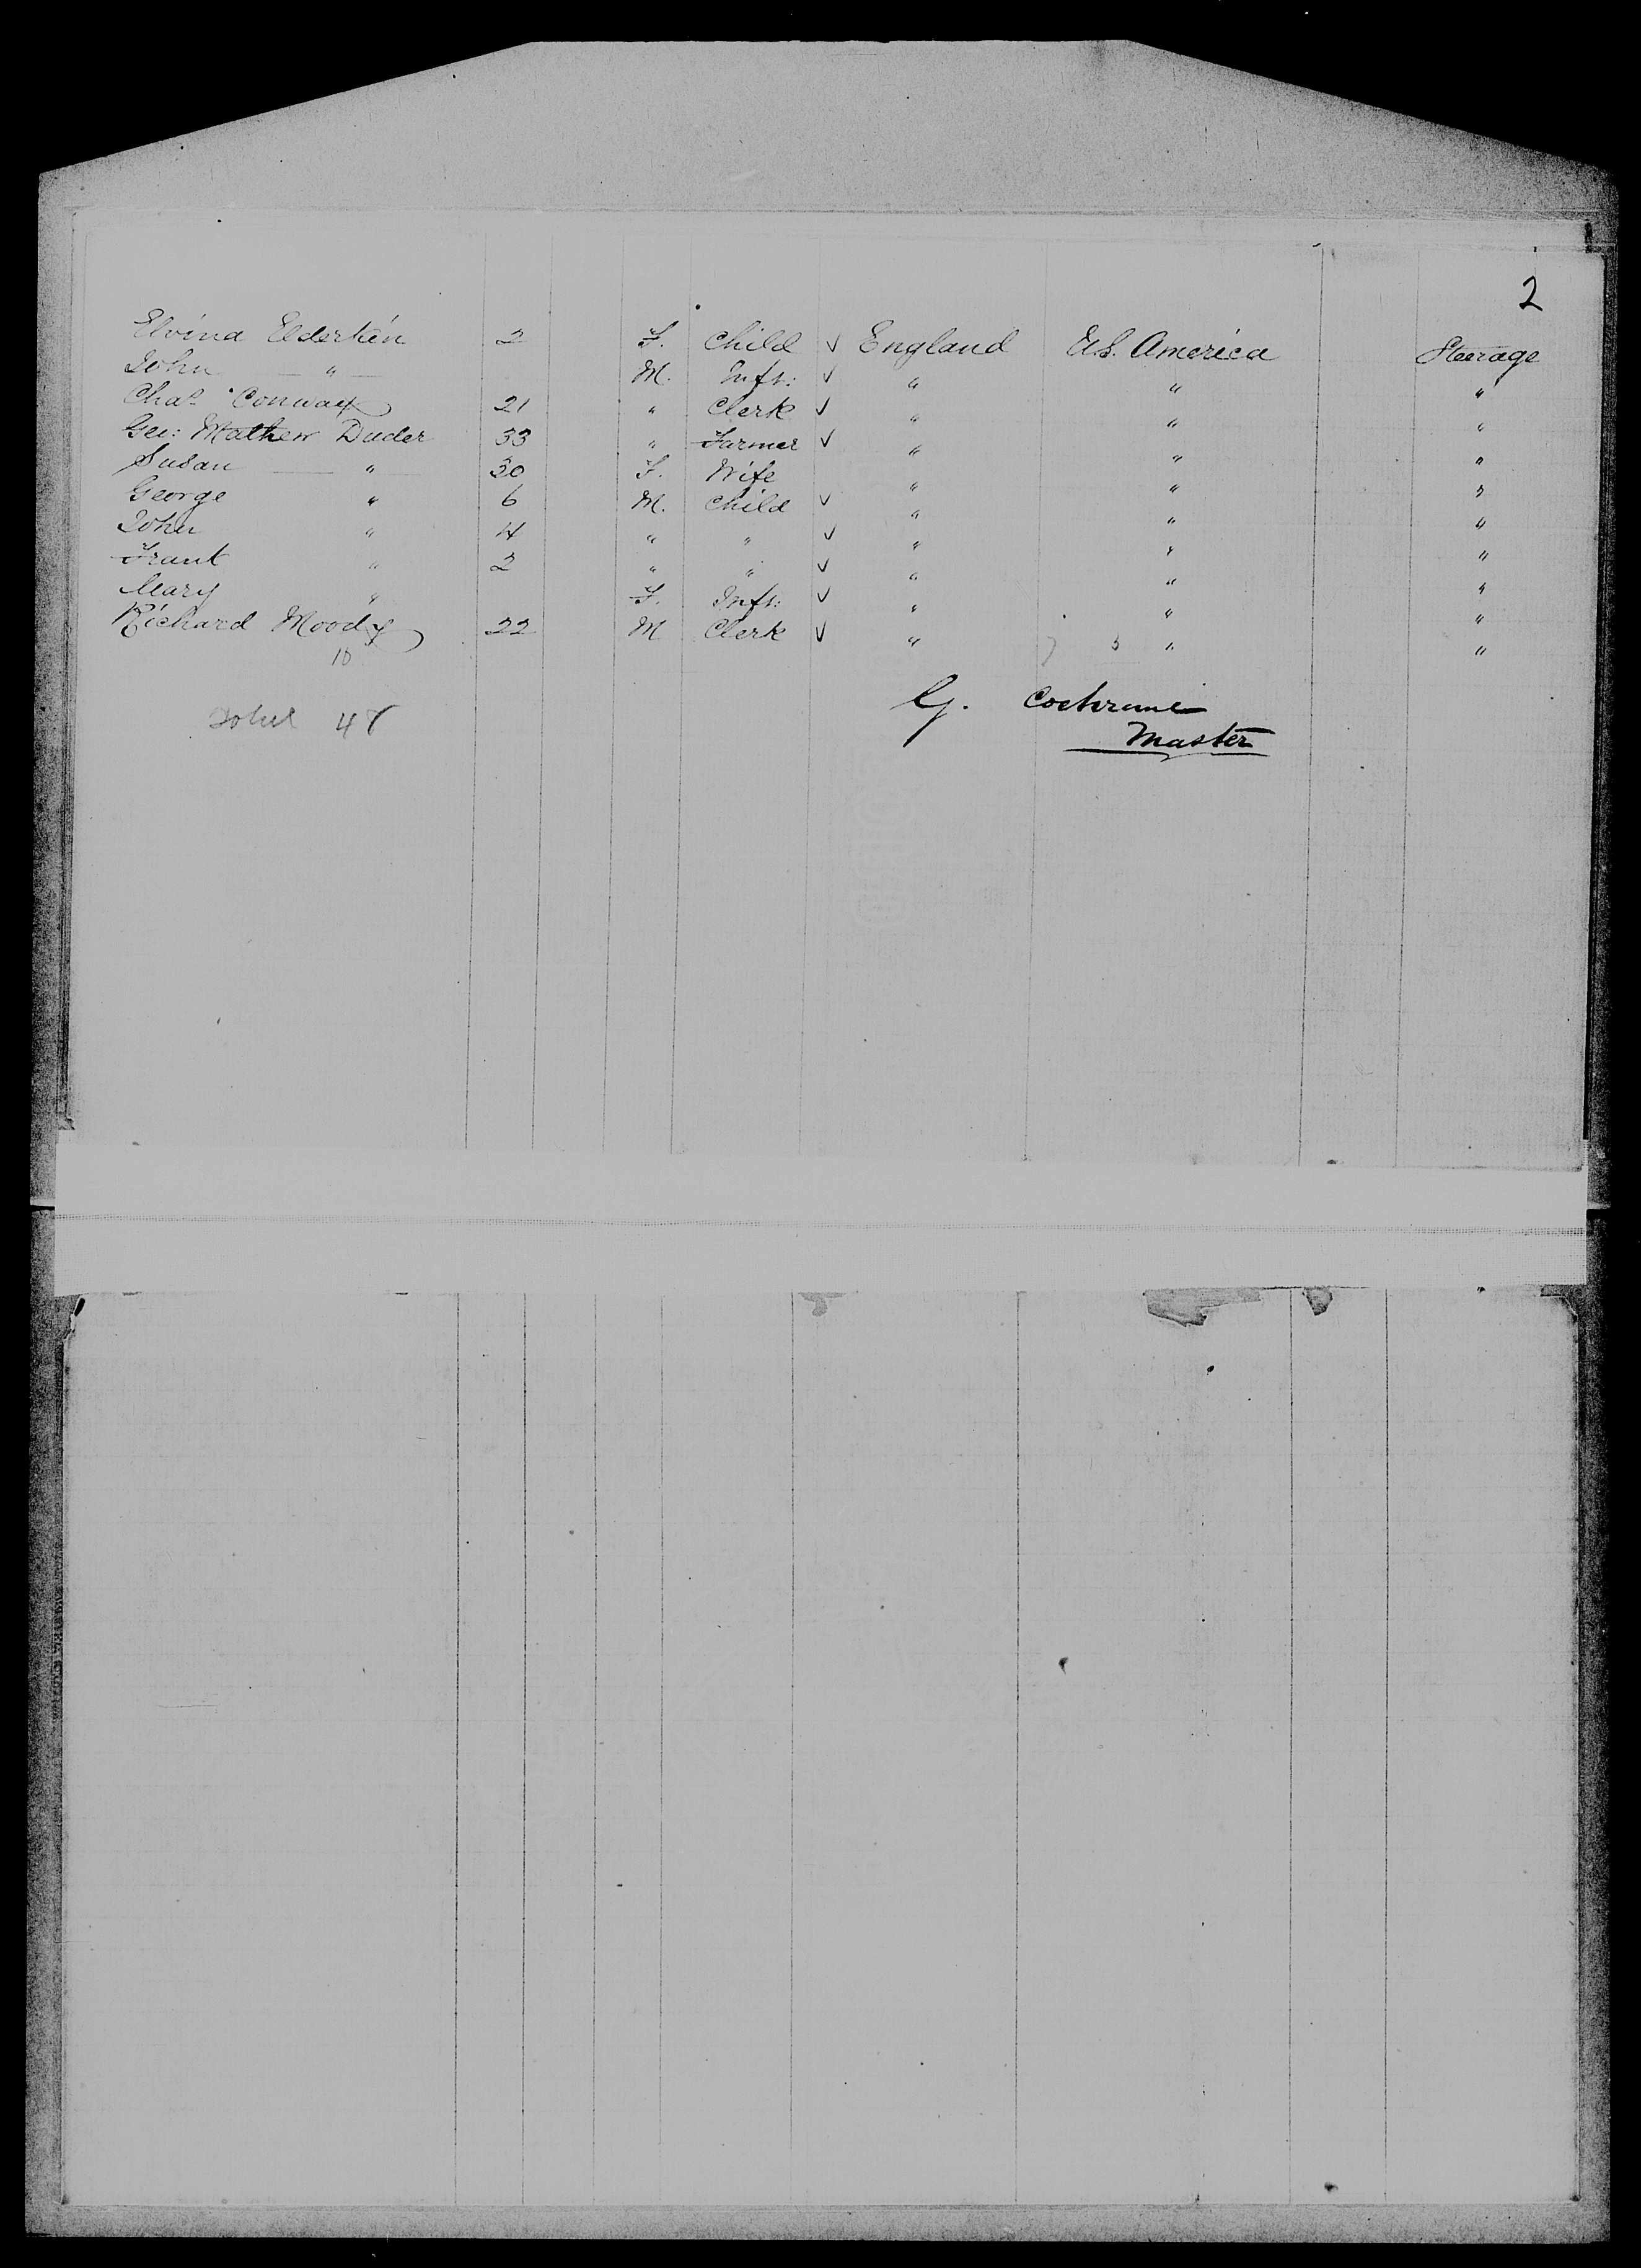 2
Elvina Elderkin 2 F. Child ✓ England U.S. America Steerage
John — " — M. Inft: ✓ " " "
Chas Conway 21 " Clerk ✓ " " "
Geo: Mathew Duder 33 " Farmer ✓ " " "
Susan — " — 30 F. Wife " " "
George " 6 M. Child ✓ " " "
John " 4 " " ✓ " " "
Frank " 2 " " ✓ " " "
Mary " F. Inft: ✓ " " "
Richard Moody 22 M Clerk ✓ " " "
10
G. Cochrane
Total
Master